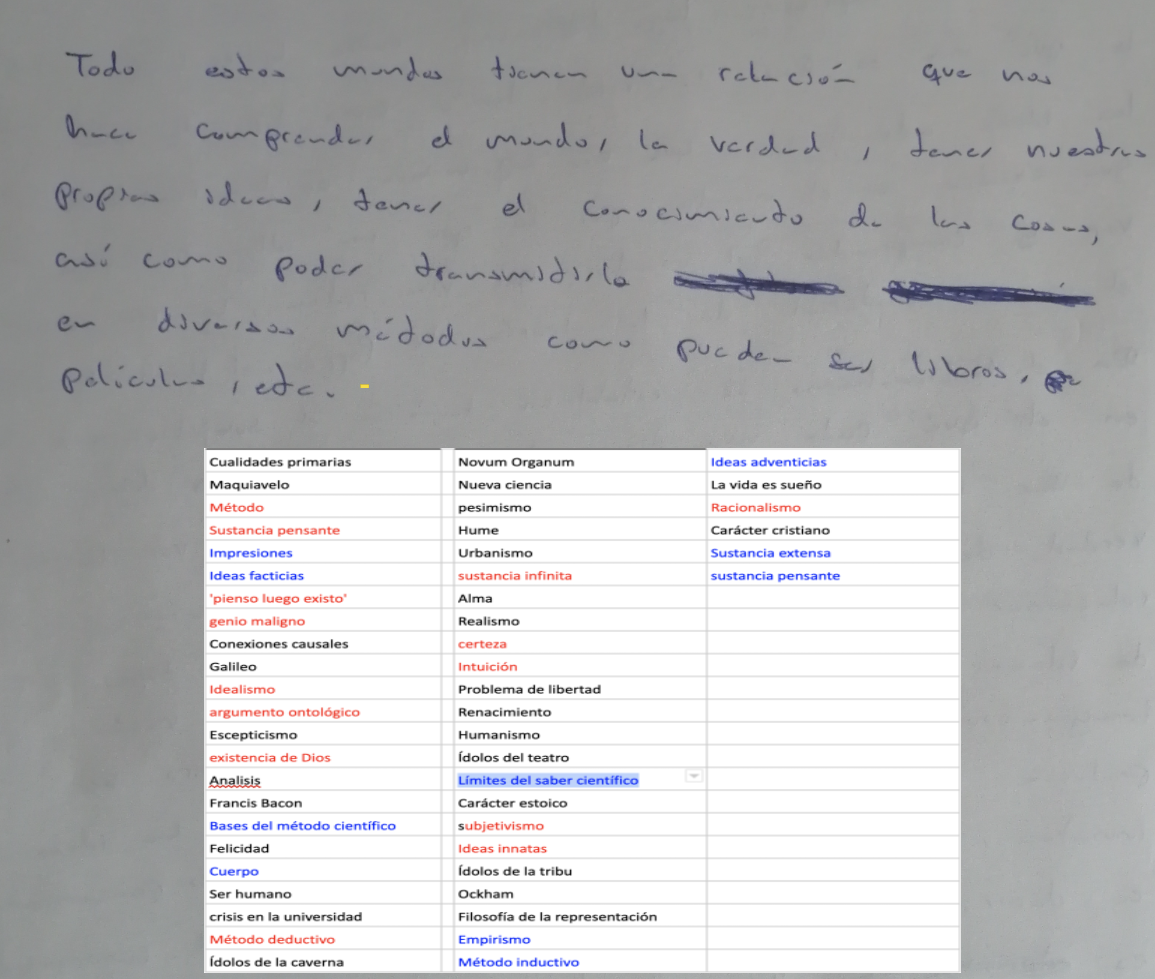 Todo estos mundos tienen una relación que nos
hace comprender el mundo, la verdad, tener nuestras
propias ideas, tener el conocimiento de las cosas,
así como poder transmitirlo
en diversos métodos como pueden ser libros,
películas, etc.
Cualidades primarias Novum Organum Ideas adventicias
Maquiavelo Nueva ciencia La vida es sueño
Método pesimismo Racionalismo
Sustancia pensante Hume Carácter cristiano
Impresiones Urbanismo Sustancia extensa
Ideas facticias sustancia infinita sustancia pensante
'pienso luego existo' Alma
genio maligno Realismo
Conexiones causales certeza
Galileo Intuición
Idealismo Problema de libertad
argumento ontológico Renacimiento
Escepticismo Humanismo
existencia de Dios Ídolos del teatro
Analisis Límites del saber científico
Francis Bacon Carácter estoico
Bases del método científico subjetivismo
Felicidad Ideas innatas
Cuerpo Ídolos de la tribu
Ser humano Ockham
crisis en la universidad Filosofía de la representación
Método deductivo Empirismo
Ídolos de la caverna Método inductivo